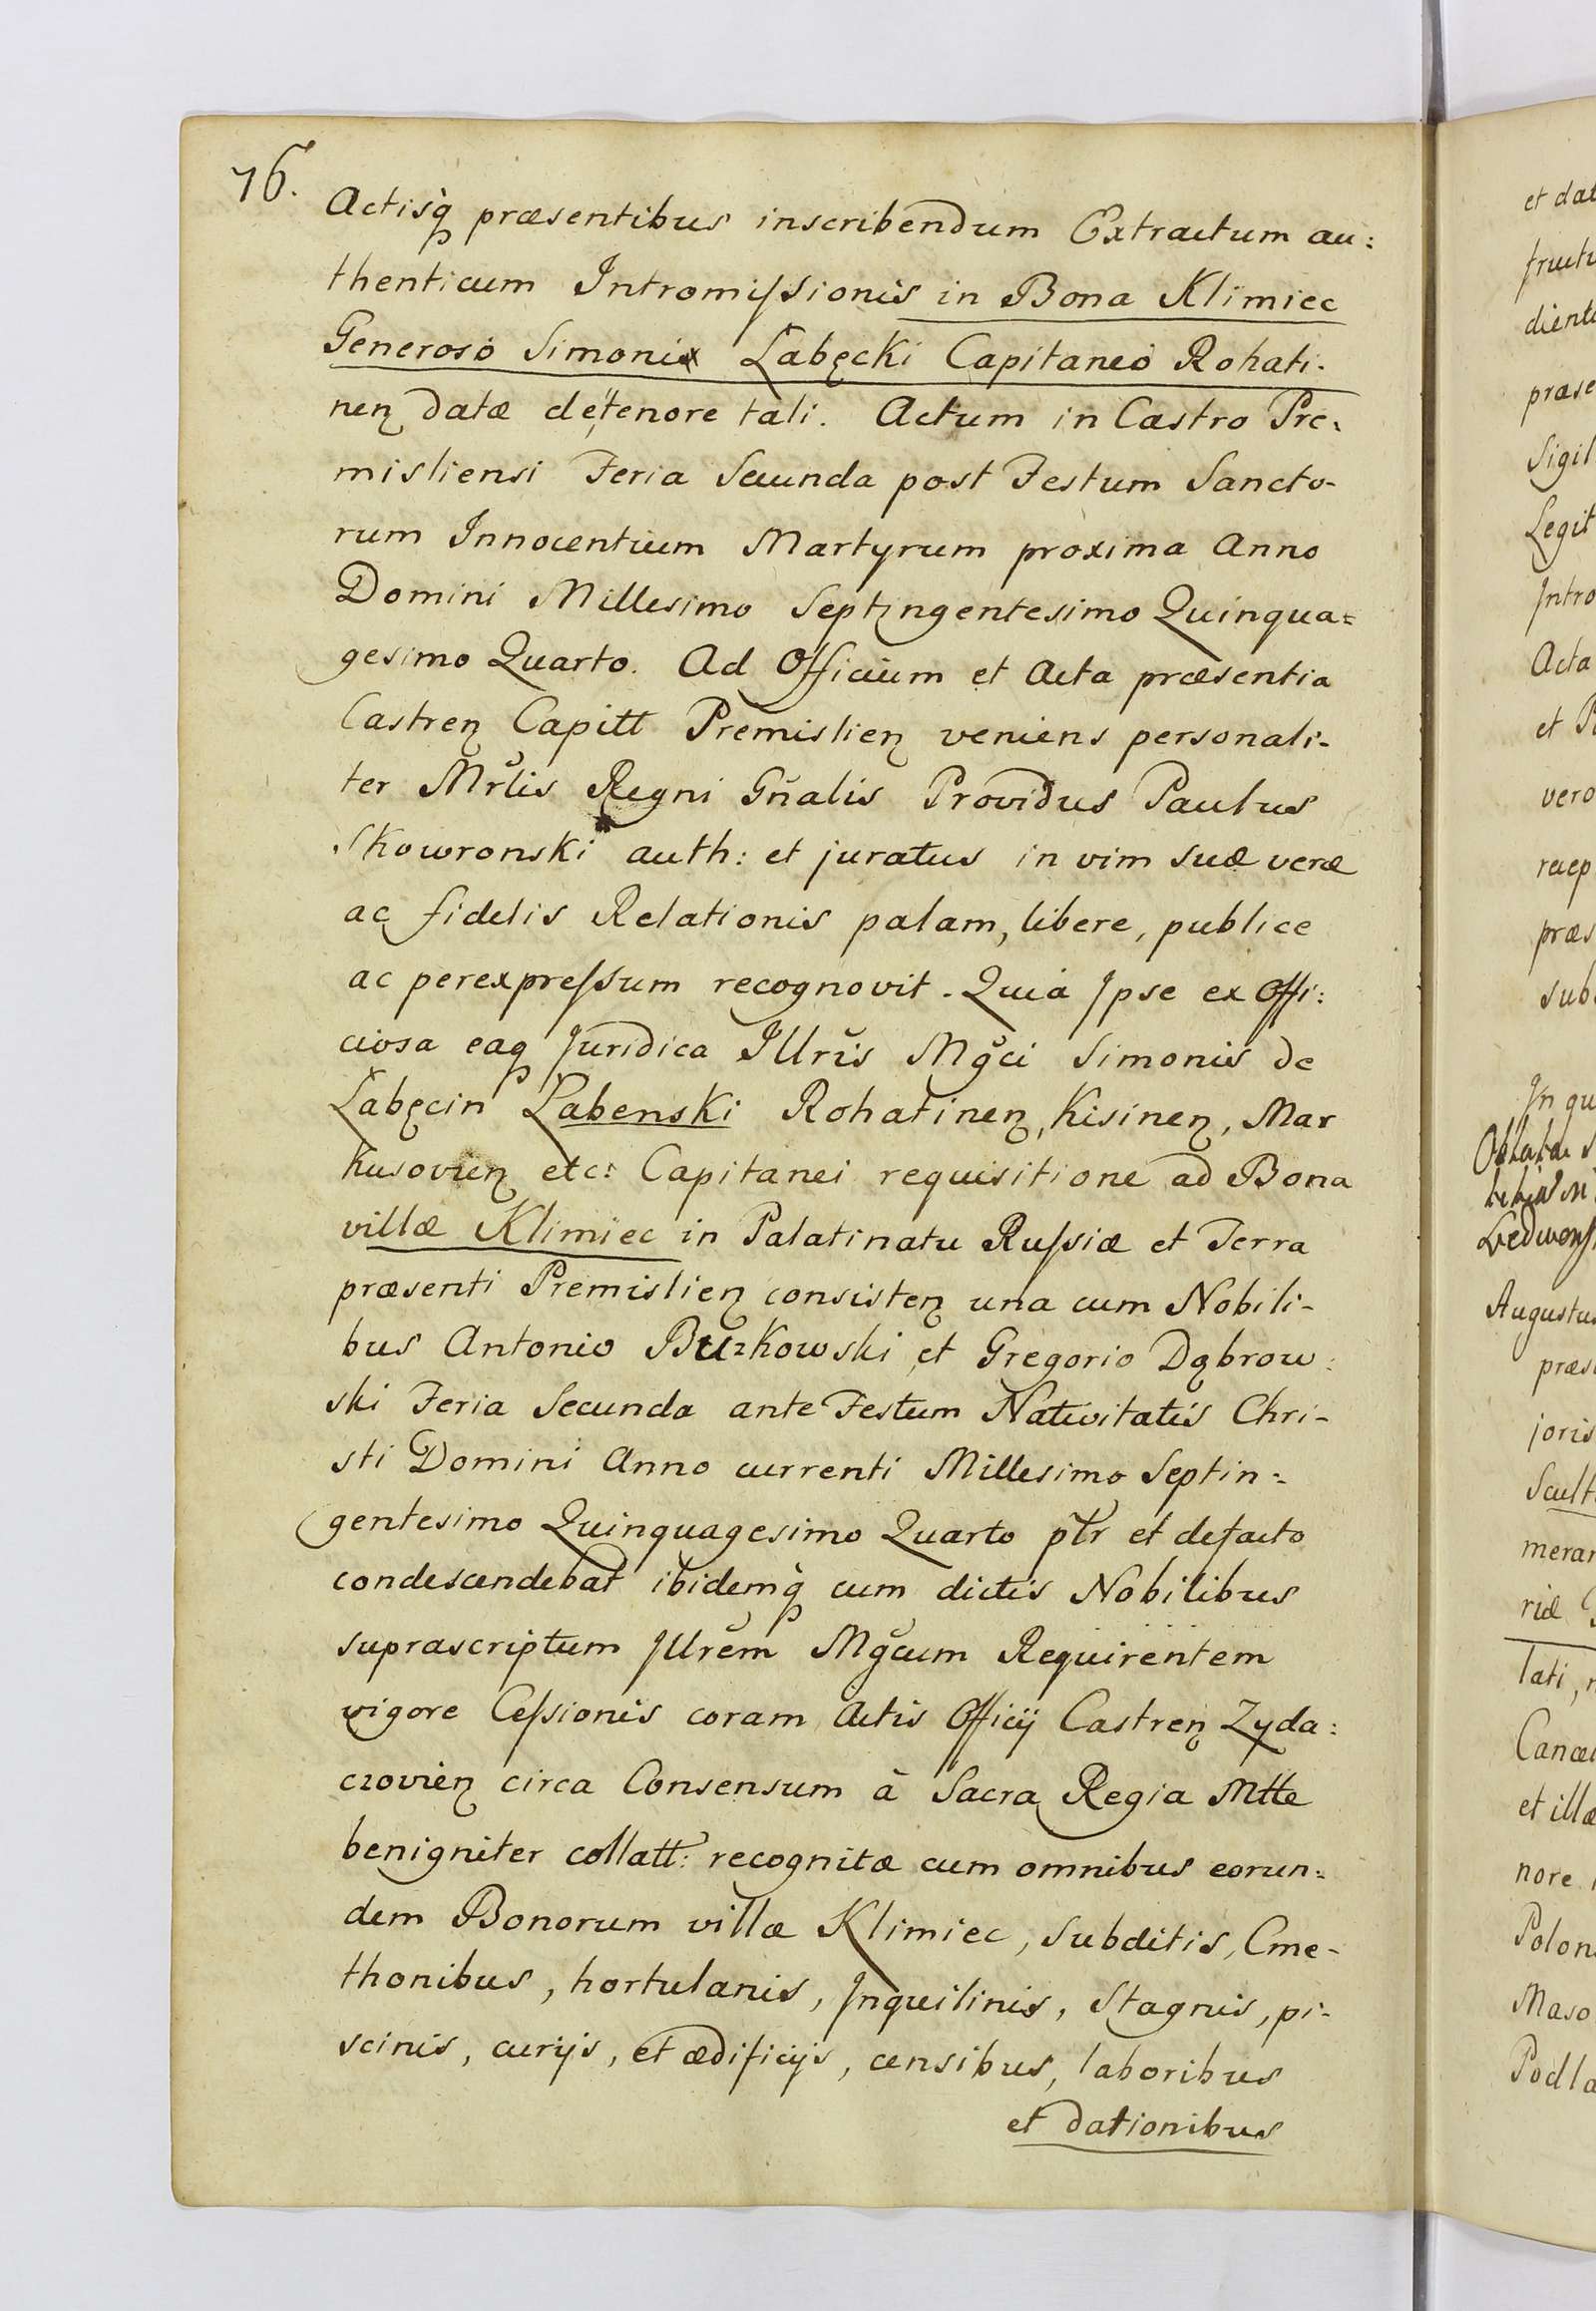 76.
Actisq̀ præsentibus inscribendum Extractum au:
thenticum Intromiſsionis in Bona Klimiec
Generosò Simoni Łabęcki Capitaneò Rohati-
neņ datæ de tenore tali. Actum in Castro Pre:
misliensi Feria Secunda post Festum Sancto-
rum Innocentium Martyrum proxima Anno
Domini Millesimo Septingentesimo Quinqua=
gesimo Quarto. Ad Officium et Acta præsentia
Castreņ Capitt Premislieņ veniens personali-
ter Mrľis Regni Gn̆alis Providus Paulus
Skowronski auth: et juratus in vim suæ veræ
ac fidelis Relationis palam, libere, publice
ac perexpreſsum recognovit. Quia Ipse ex Offi:
ciosa eaq Juridica Illrĭs Mğci Simonis de
Łabęcin Łabenski Rohatineņ, Kisineņ, Mar
kusovieņ etc: Capitanei requisitione ad Bona
villæ Klimiec in Palatinatu Ruſsiæ et Terra
præsenti Premislieņ consisteņ una cum Nobili-
bus Antonio Buzkowski et Gregorio Dąbrow:
ski Feria Secunda ante Festum Nativitatis Chri-
sti Domini Anno currenti Millesimo Septin=
gentesimo Quinquagesimo Quarto ptr̃ et defacto
condescendebat ibidemq̀ cum dictis Nobilibus
suprascriptum Illrĕm Mğcum Requirentem
vigore Ceſsionis coram Actis Officij Castreņ Zyda:
czovieņ circa Consensum à Sacra Regia Mtte
benigniter collatt: recognitæ cum omnibus eorun=
dem Bonorum villæ Klimiec, Subditis, Cme-
thonibus, hortulanis, Inquilinis, Stagnis, pi-
scinis, curijs, et ædificijs, censibus, laboribus
et dationibus
et dat
dient
præse
Sigil
Legit
Intro
Acta
et P
vero
præs
sub
In qu
Augustus
præs
joris
Scult
merar
riæ
lati,
et illæ
nore
Polon
Maso